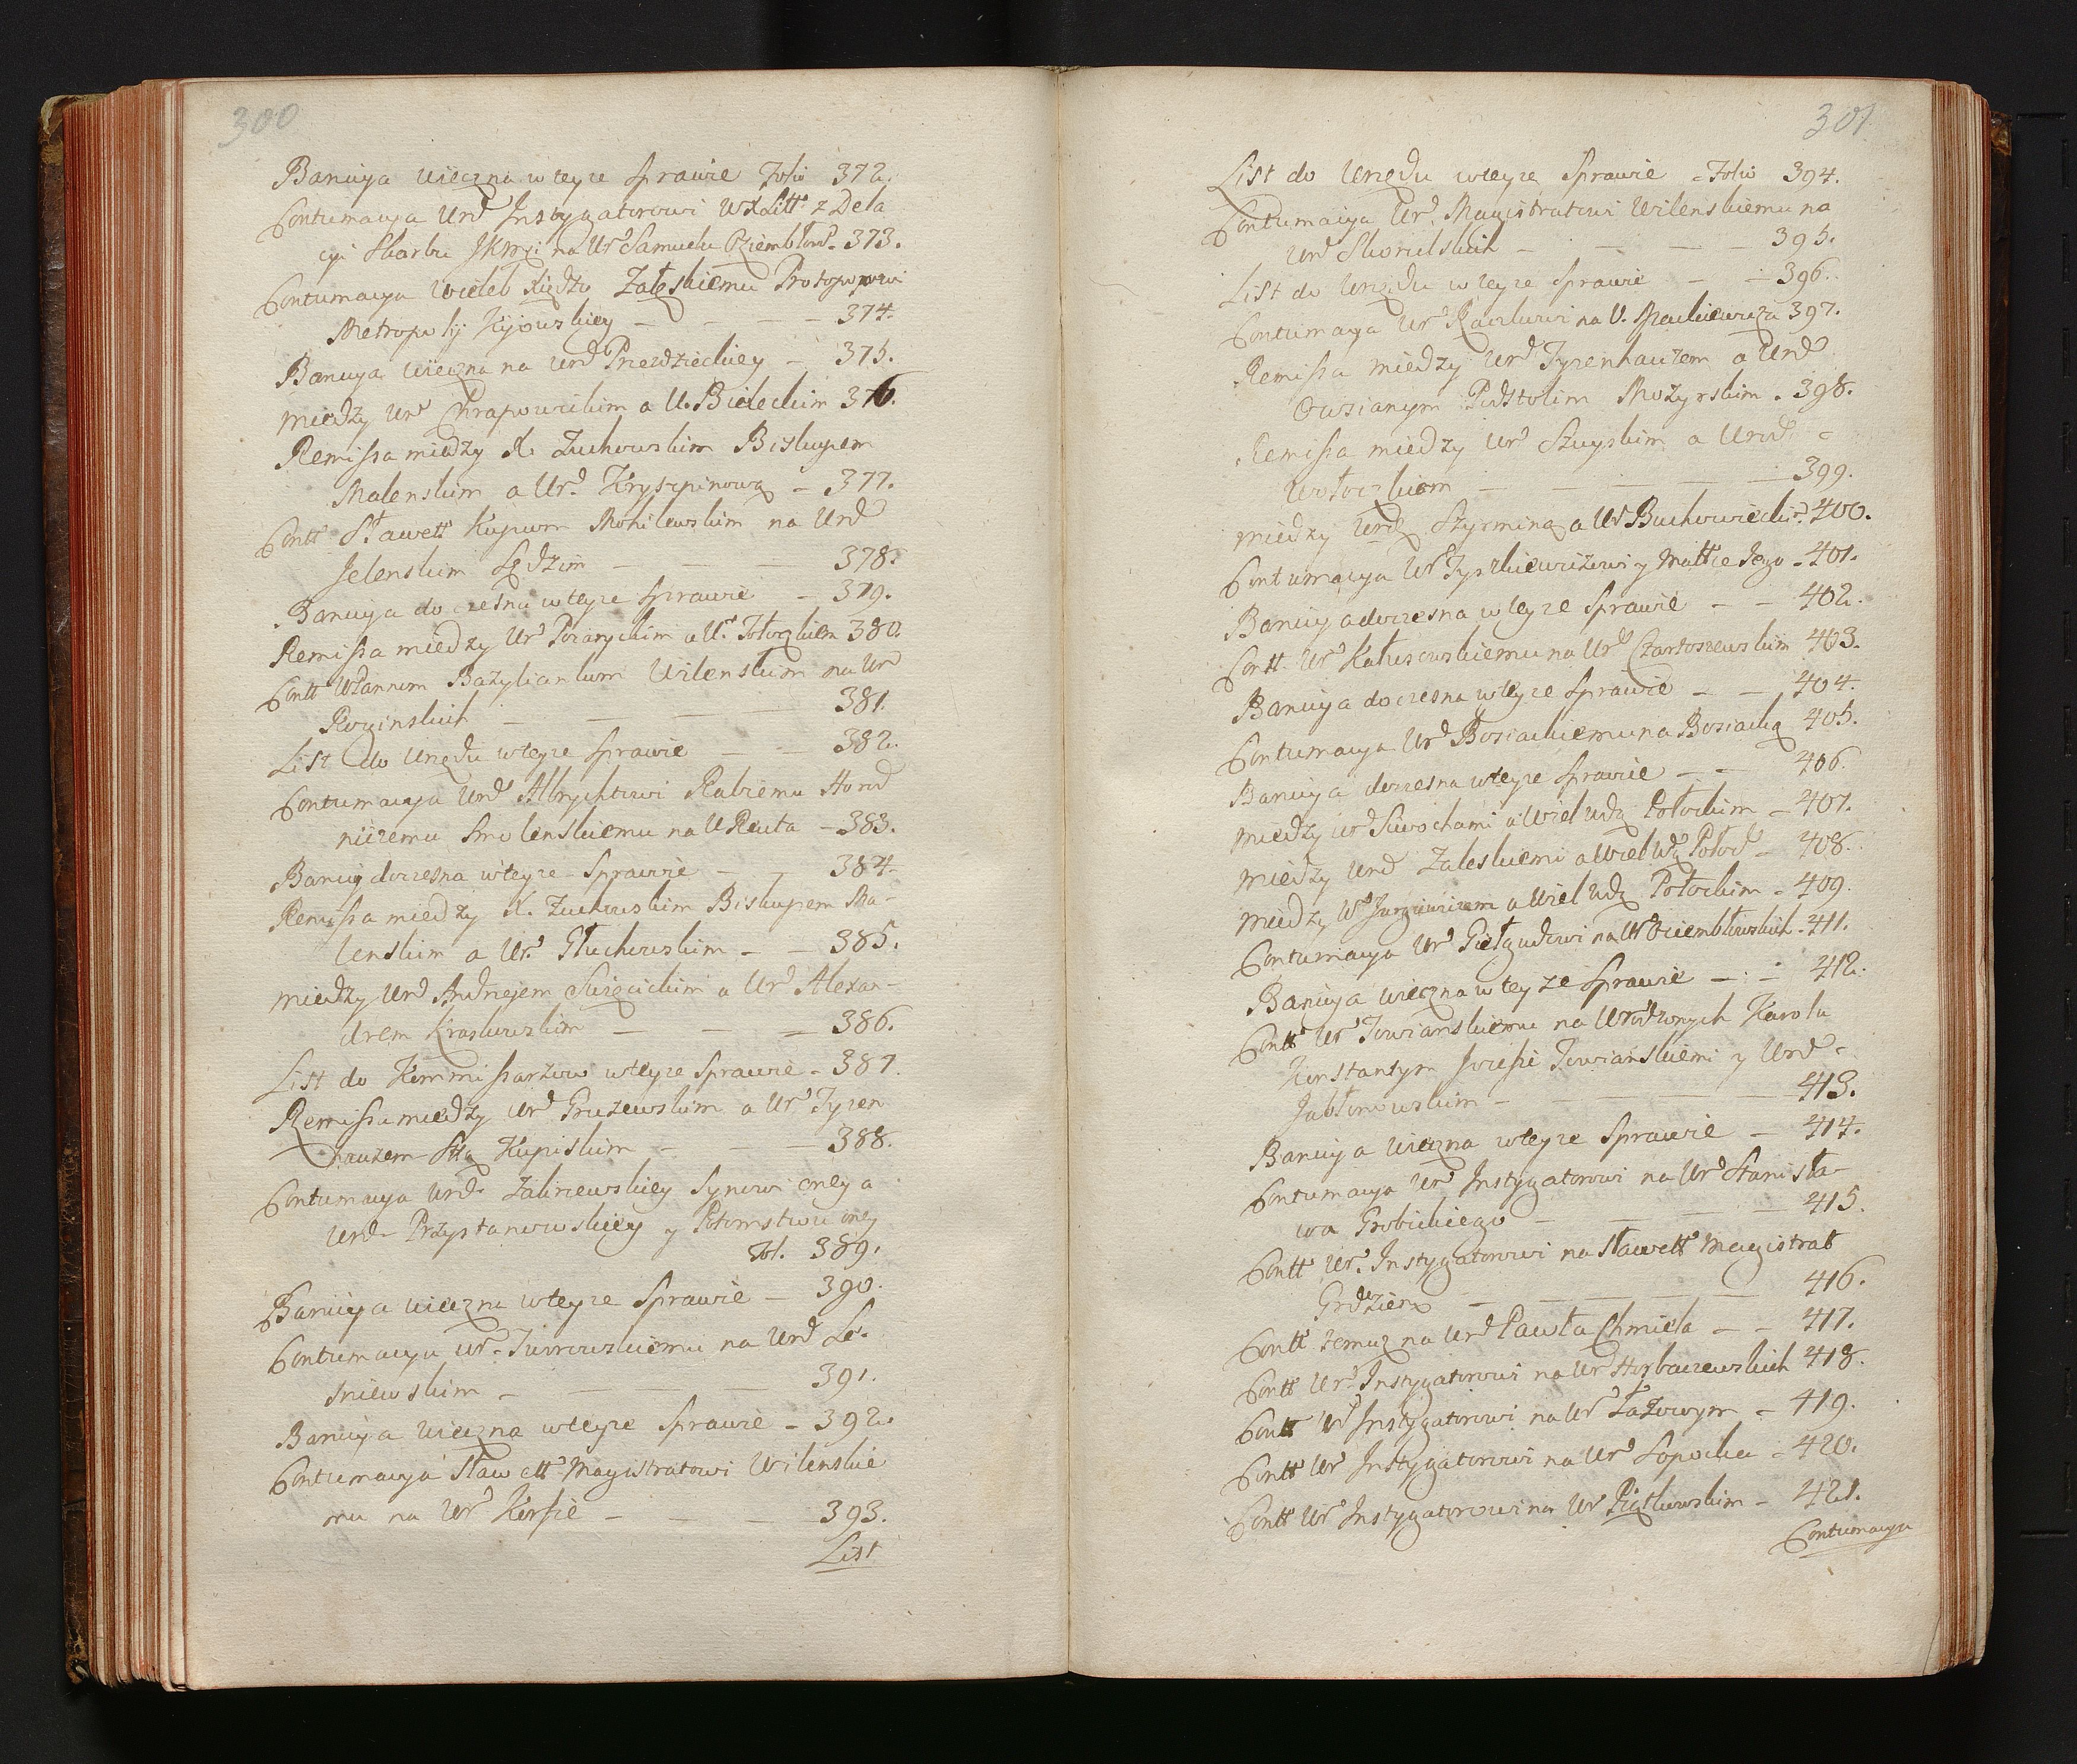 300
Banicya wieczna w teyze Sprawie Folio 372.
Contumacya Urd Instygatorowi W X Litt z Dela
cyi Skarbu JKMci na Ur Samuela Oziembłow. 373.
Contumacya Wieleb Xiędzu Załęskiemu Protopopowi
Metropolij Kijowskiey — — — 374.
Banicya wieczna na Urd Przezdzieckiey — 375.
Miedzy Ur Chrapowickim a U. Bieleckim 376.
Remissa miedzy X. Zuchowskim Biskupem
Malenskim a Ur. Kryszpinową — 377.
Contt Sławett Kupcom Mohilewskim na Urd
Jelenskim Sędzim — — — 378.
Banicya doczesna w teyze Sprawie — 379.
Remissa miedzy Ur Pozaryckim a U. Tołoczkiem 380.
Contt WPannom Bazyliankom Wilenskim na Ur
Roginskich — — — 381.
List do Urzędu w teyze Sprawie — — 382.
Contumacya Urd Albrychtowi Rabiemu Horod
niczemu Smolenskiemu na U Reuta — 383.
Banicy doczesna w teyze Sprawie — — 384.
Remissa miedzy X. Zuchowskim Biskupem Ma-
lenskim a Ur. Głuchowskim — — 385.
Miedzy Urd Andrzejem Swięcickim a Urd Alexan-
drem Krasowskim — — — 386.
List do Kommissarzow w teyze Sprawie — 387.
Remissa miedzy Urd Gruzewskim a Ur Tyzen
hauzem Sttą Kupiskim — — 388.
Contumacya Urd Zabrzewskiey Synowi oney a
Urd Przystanowskiey y Potomstwu oney
Fol. 389.
Banicya wieczna w teyze Sprawie — 390.
Contumacya Ur. Turrowskiemu na Urd Le-
sniewskim — — — 391.
Banicya wieczna w teyze Sprawie — 392.
Contumacya Sławett Magistratowi Wilenskie
mu na Ur Korsie — — — 393.
List
301
List do Urzędu w teyze Sprawie — Folio 394.
Contumacya Ur. Magistratowi Wilenskiemu na
Urd Skorulskich — — — — 395.
List do Urzędu w teyze Sprawie — — 396.
Contumacya Ur na U. Mackiewicza 397.
Remissa miedzy Urd Tyzenhauzem a Urd
Owsianym Podstolim Mozyrskim. 398.
Remissa miedzy Ur Szuyskim a Urod =
Wołoczkiem — — — — 399.
Miedzy Urd Szyrminą a Ur Buchowiecki. 400.
Contumacya Ur Tyszkiewiczowi y Mattce Jego — 401.
Banicya doczesna w teyze Sprawie — — 402.
Contt Ur Kałusowskiemu na Ur Czartoszewskim 403.
Banicya doczesna w teyze Sprawie — — 404.
Contumacya Urd Bosiackiemu na Bosiacką 405.
Banicya doczesna w teyze Sprawie — — 406.
Miedzy Urd Siwochami a Wiel Wdą Połockim — 407.
Miedzy Urd Zaleskiemi a Wiel Wdą Połoc — 408.
Miedzy Ur Jurgiewiczem a Wiel Wdą Połockim — 409.
Contumacya Ur Giełgudowi na Ur Oziembłowskich. 411.
Banicya wieczna w teyze Sprawie — — 412.
Contt Ur Towianskiemu na Urodzonych Karolu
Konstantym Jozefie Towianskiemi y Urd —
Jabłonowskim — — — — 413.
Banicya wieczna w teyze Sprawie — 414.
Contumacya Ur Instygatorowi na Ur Stanisła-
wa Grobickiego — — — — 415.
Contt Ur. Instygatorowi na Sławett Magistrat
Grodzien — — — — 416.
Contt temuz na Urd Pawła Chmiela — — 417.
Contt Ur. Instygatorowi na Ur Horbaczewskich 418.
Contt Ur Instygatorowi na Ur Łazowym — 419.
Contt Ur Instygatorowi na Ur Łopocha — 420.
Contt Ur Instygatorowi na Ur Piątkowskim — 421.
Contumacya